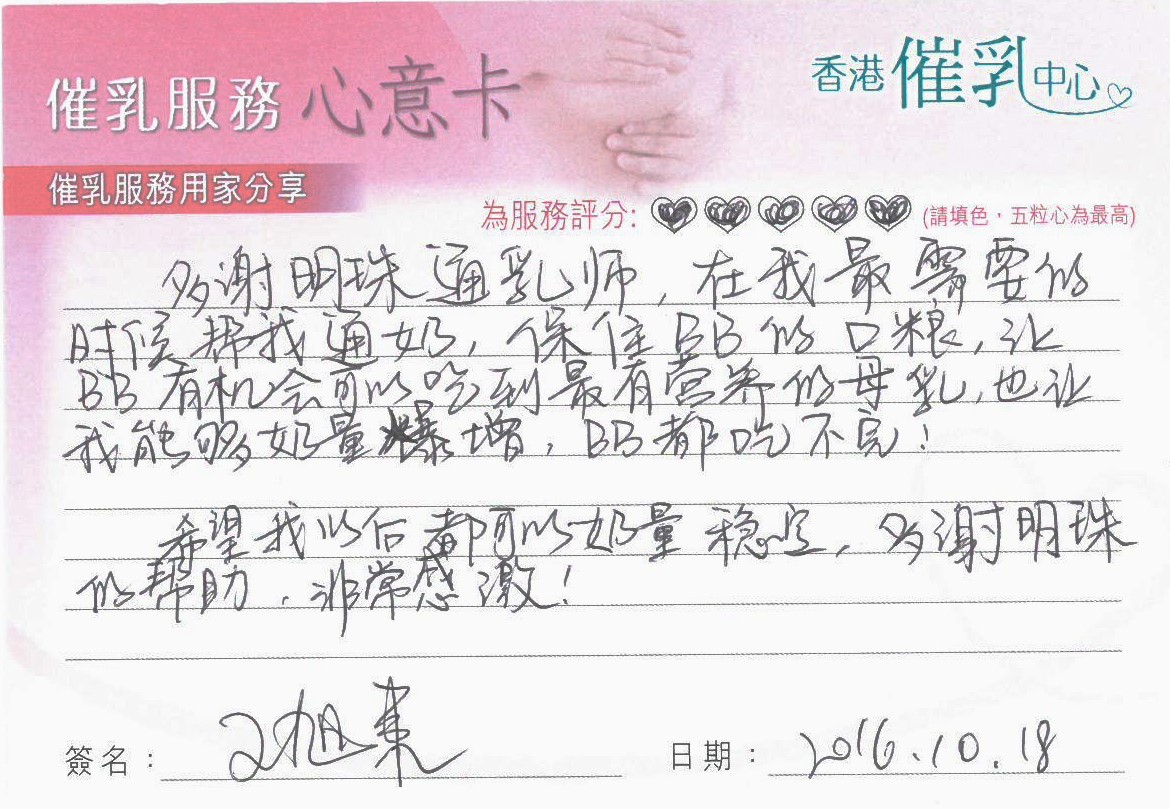 催乳服務心意卡
香港催乳中心
催乳服務用家分享
為服務評分: (請填色，五粒心為最高)
多谢明珠通乳师，在我最需要的
时候帮我通奶，保住BB的口粮，让
BB有机会可以吃到最有营养的母乳，也让
我能够奶量爆增，BB都吃不完！
希望我以后都可以奶量稳定，多谢明珠
的帮助，非常感激！
簽名：
日期：2016.10.18